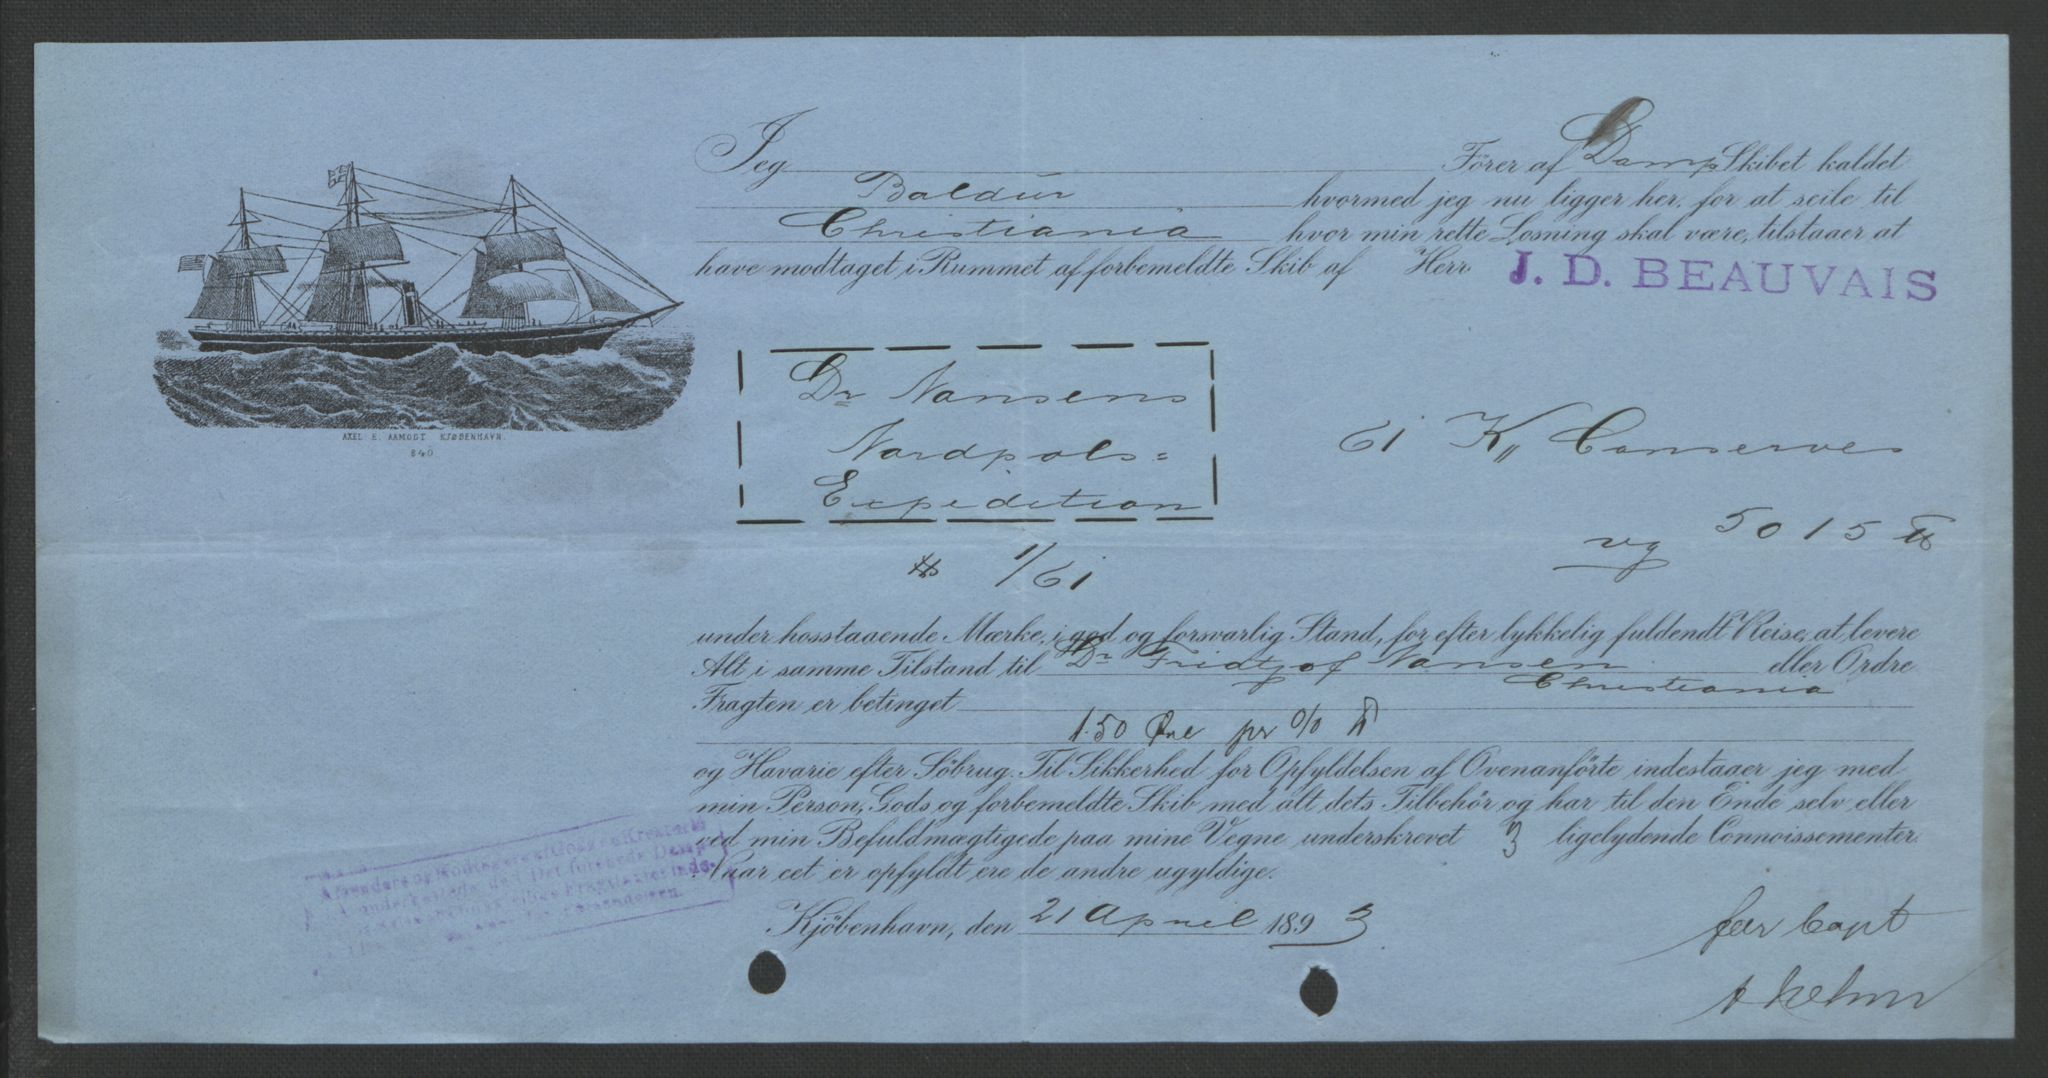 Jeg Förer af Damp Skibet kaldet
Baldur hvormed jeg nu ligger her, for at seile til
Christiania hvor min rette Losning skal være, tilstaaer at
have modtaget i Rummet af forbemeldte Skib af Herr. J. D. BEAUVAIS
AXEL E. AAMODT KJØBENHAVN.
840
Dr Nansens
Nordpols=
Expedition
61 K,, Conserves
vg 5015 ℔
# 1/61
under hosstaaende Mærke, i god og forsvarlig Stand, for efter lykkelig fuldendt Reise, at levere
Alt i samme Tilstand til Dr Fridtjof Nansen eller Ordre
Christiania
Fragten er betinget
1.50 Øre pr % ℔
og Havarie efter Söbrug. Til Sikkerhed for Opfyldelsen af Ovenanförte indestaaer jeg med
min Person, Gods og forbemeldte Skib med alt dets Tilbehör og har til den Ende selv eller
ved min Befuldmægtigede paa mine Vegne underskrevet 3 ligelydende Connoissementer.
Naar eet er opfyldt ere de andre ugyldige.
Kjöbenhavn, den 21 April 1893
for Capt